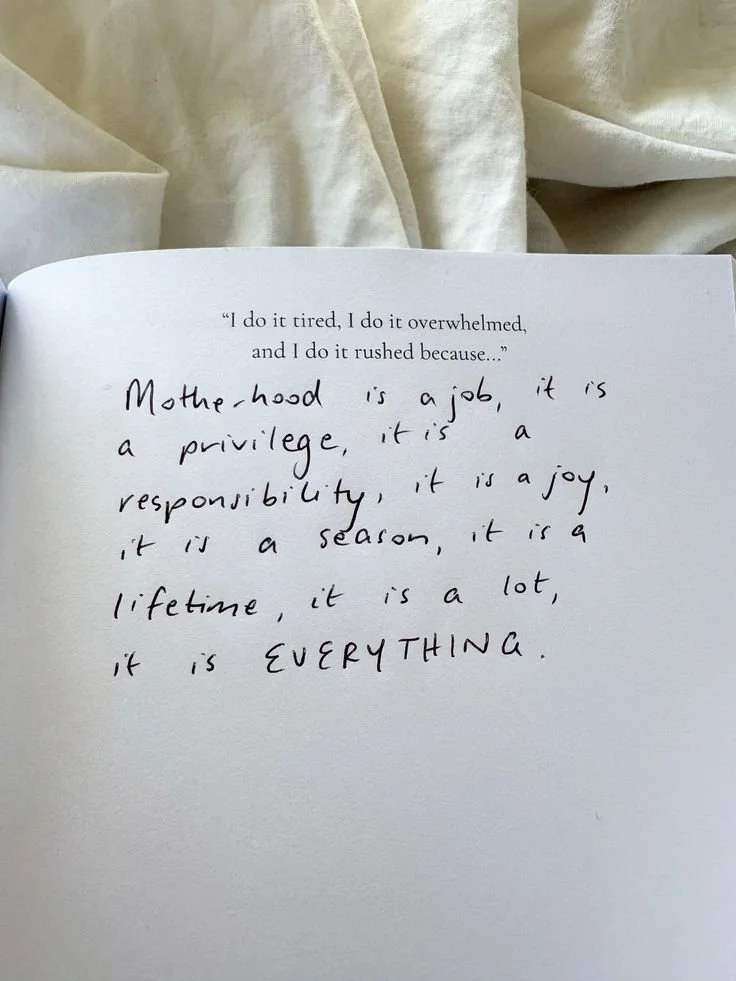 “I do it tired, I do it overwhelmed,
and I do it rushed because...”
Motherhood is a job, it is
a privilege, it is a
responsibility, it is a joy,
it is a season, it is a
lifetime, it is a lot,
it is EVERYTHING.